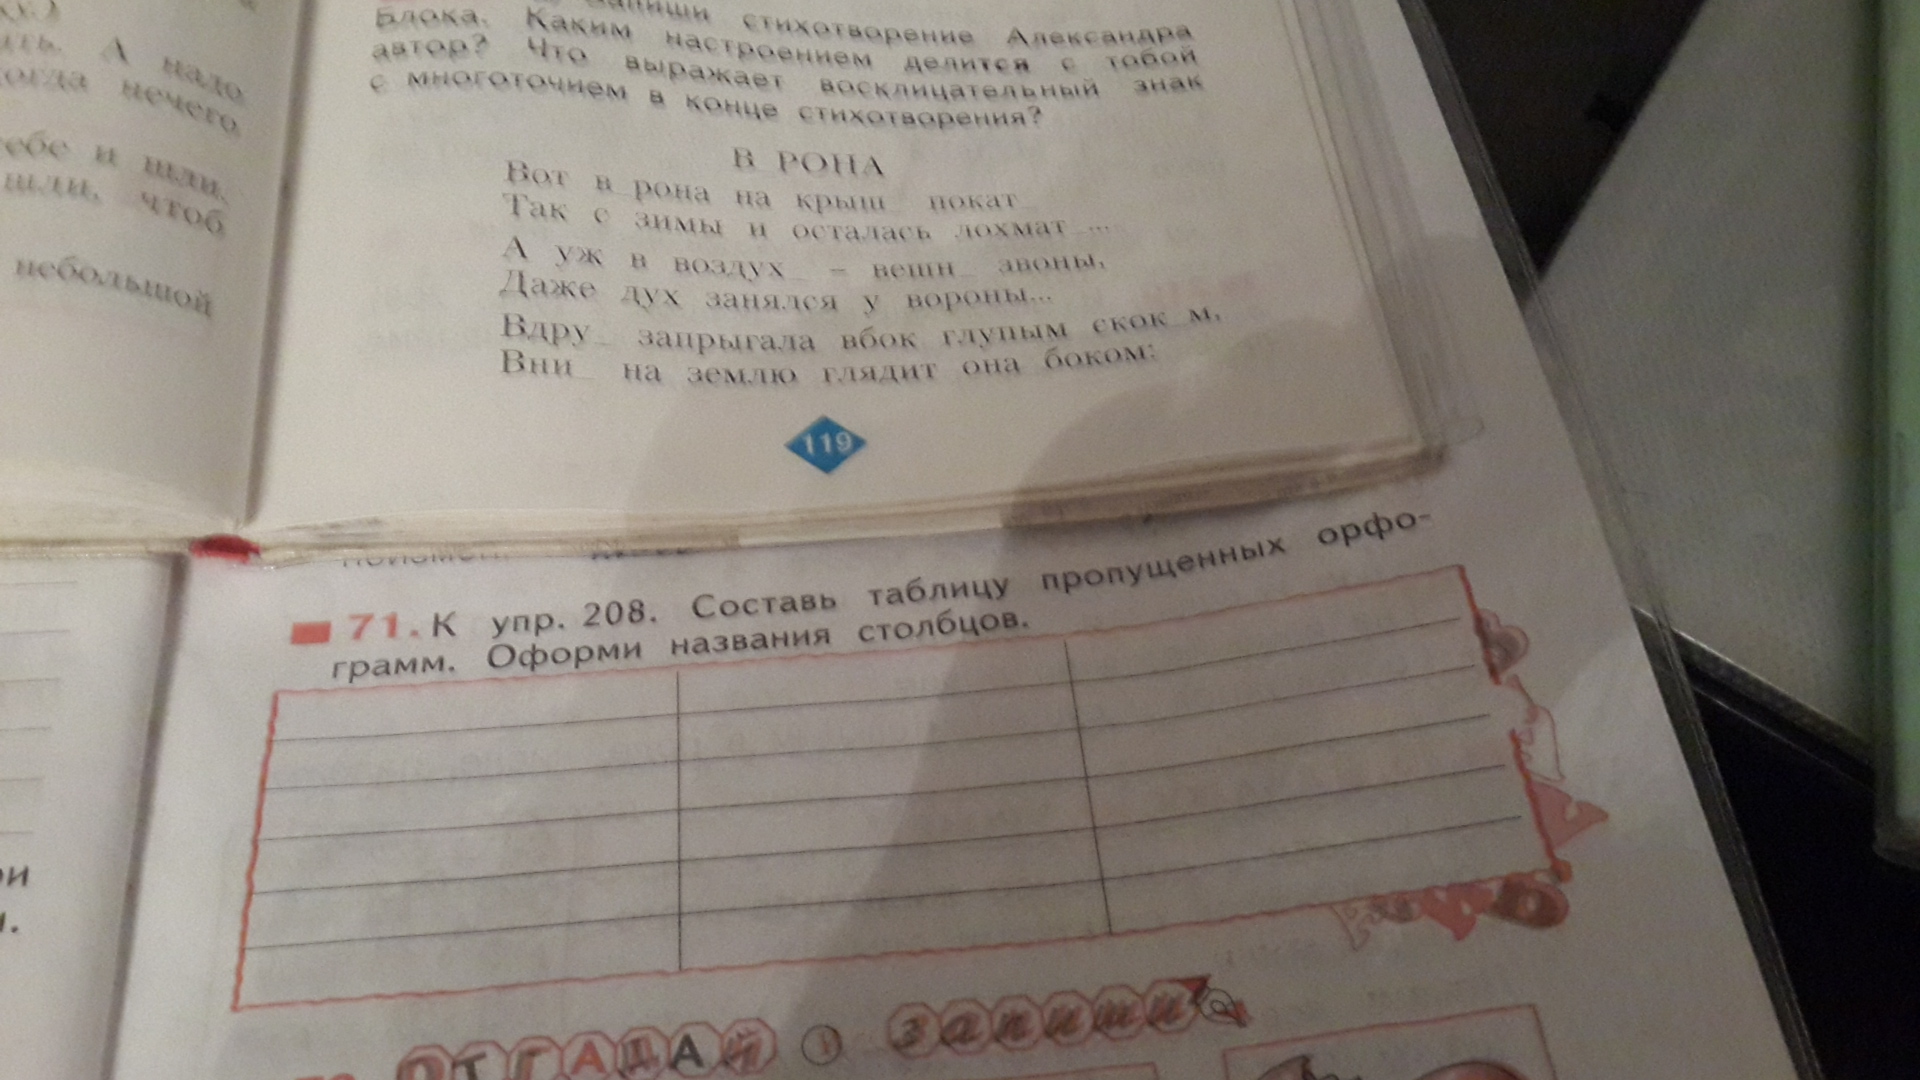 ать. А надо
когда нечего
себе и шли,
шли, чтоб
небольшой
стихотворение Александра
Блока. Каким настроением делится с тобой
автор? Что выражает восклицательный знак
с многоточием в конце стихотворения?
В_РОНА
Вот в_рона на крыш_ покат_
Так с зимы и осталась лохмат_...
А уж в воздух_ – вешн_ звоны,
Даже дух занялся у вороны...
Вдру_ запрыгала вбок глупым скок_м,
Вни_ на землю глядит она боком:
119
71. К упр. 208. Составь таблицу пропущенных орфо-
грамм. Оформи названия столбцов.
ОТГАДАЙ и запиши